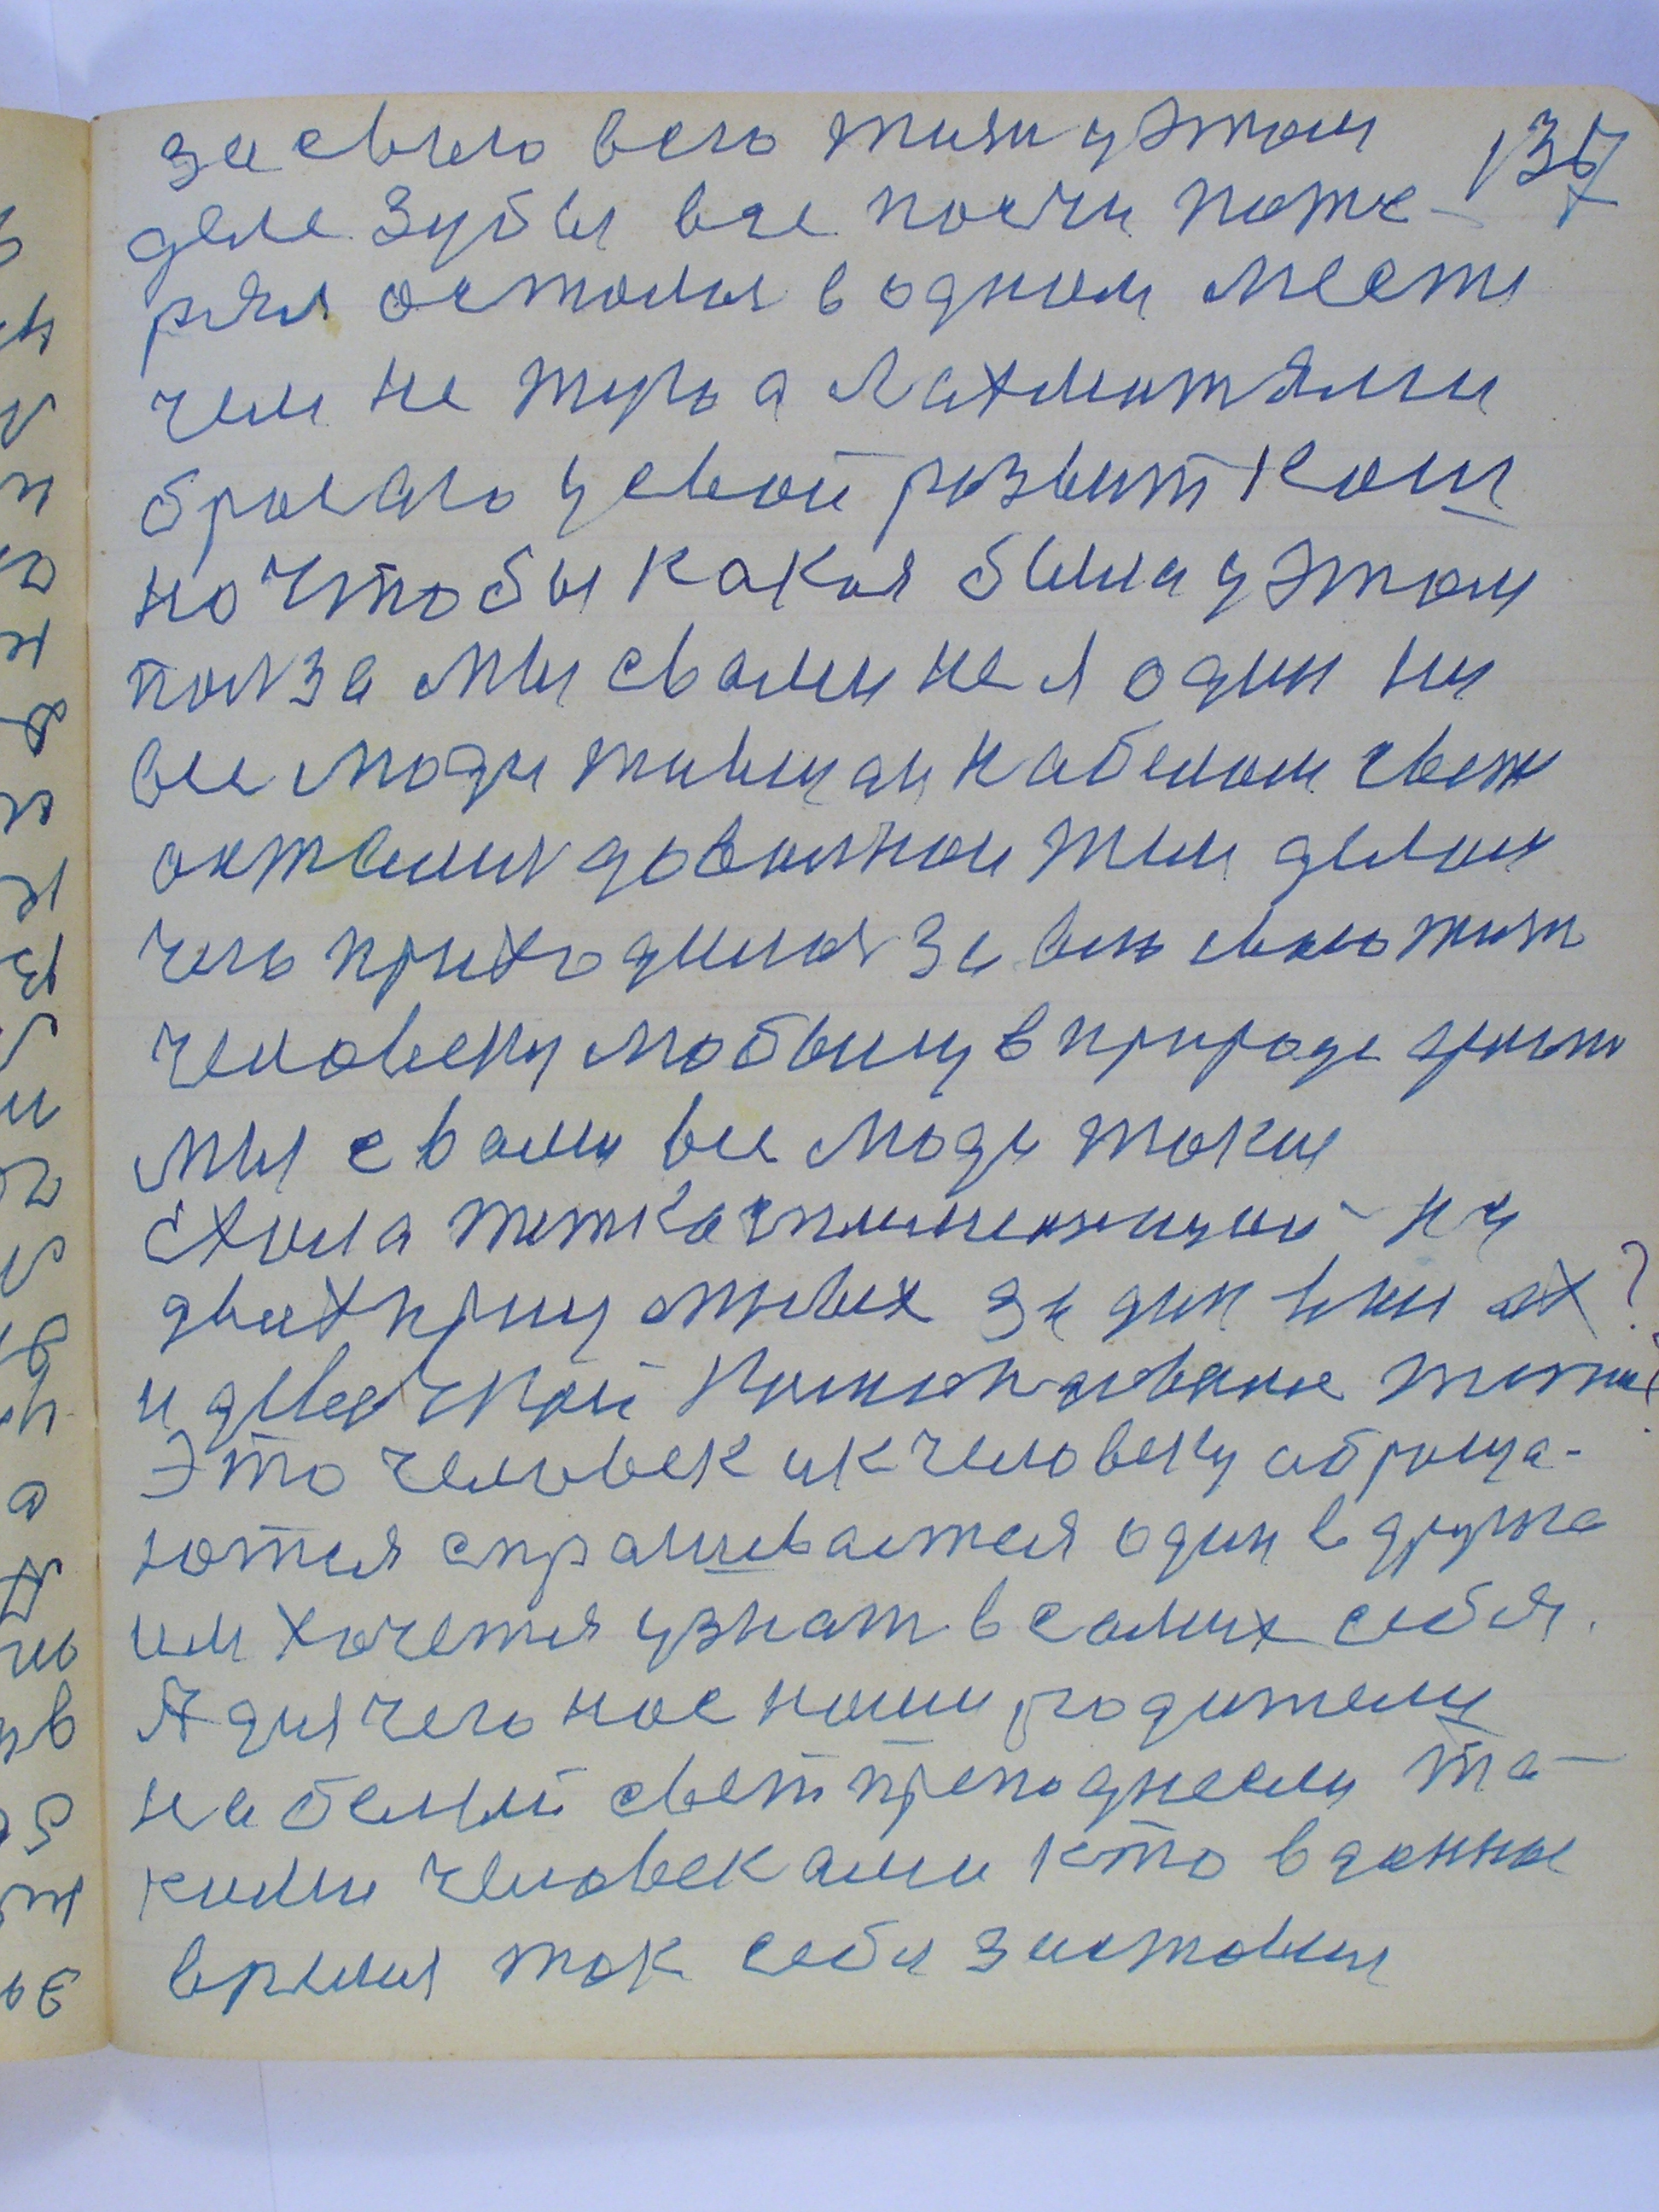 за свию всю жизн у этом 137
деле зубы все посчи поте-
рял осталися в одном месте
чем не терь а лахмотями
бросаю у свой развит кош
но чтобы какая была у этом
полза мы свами не я один ни
все люди живущаи на белом свете
осталися довольнои тем делом
чего приходилося за всю свою жизн
человеку любыму в природе
мы с вами все люди такие
Ехала тетка сплименницой на
двух за дин ?
и девочкой
Это человек и к человеку обраща-
ются спрашивается один в друга
им хочется узнат в самих себя.
А для чего нас наши родители
на белый свет преподнесли та-
кими человеками кто в данное
время так себя заставил